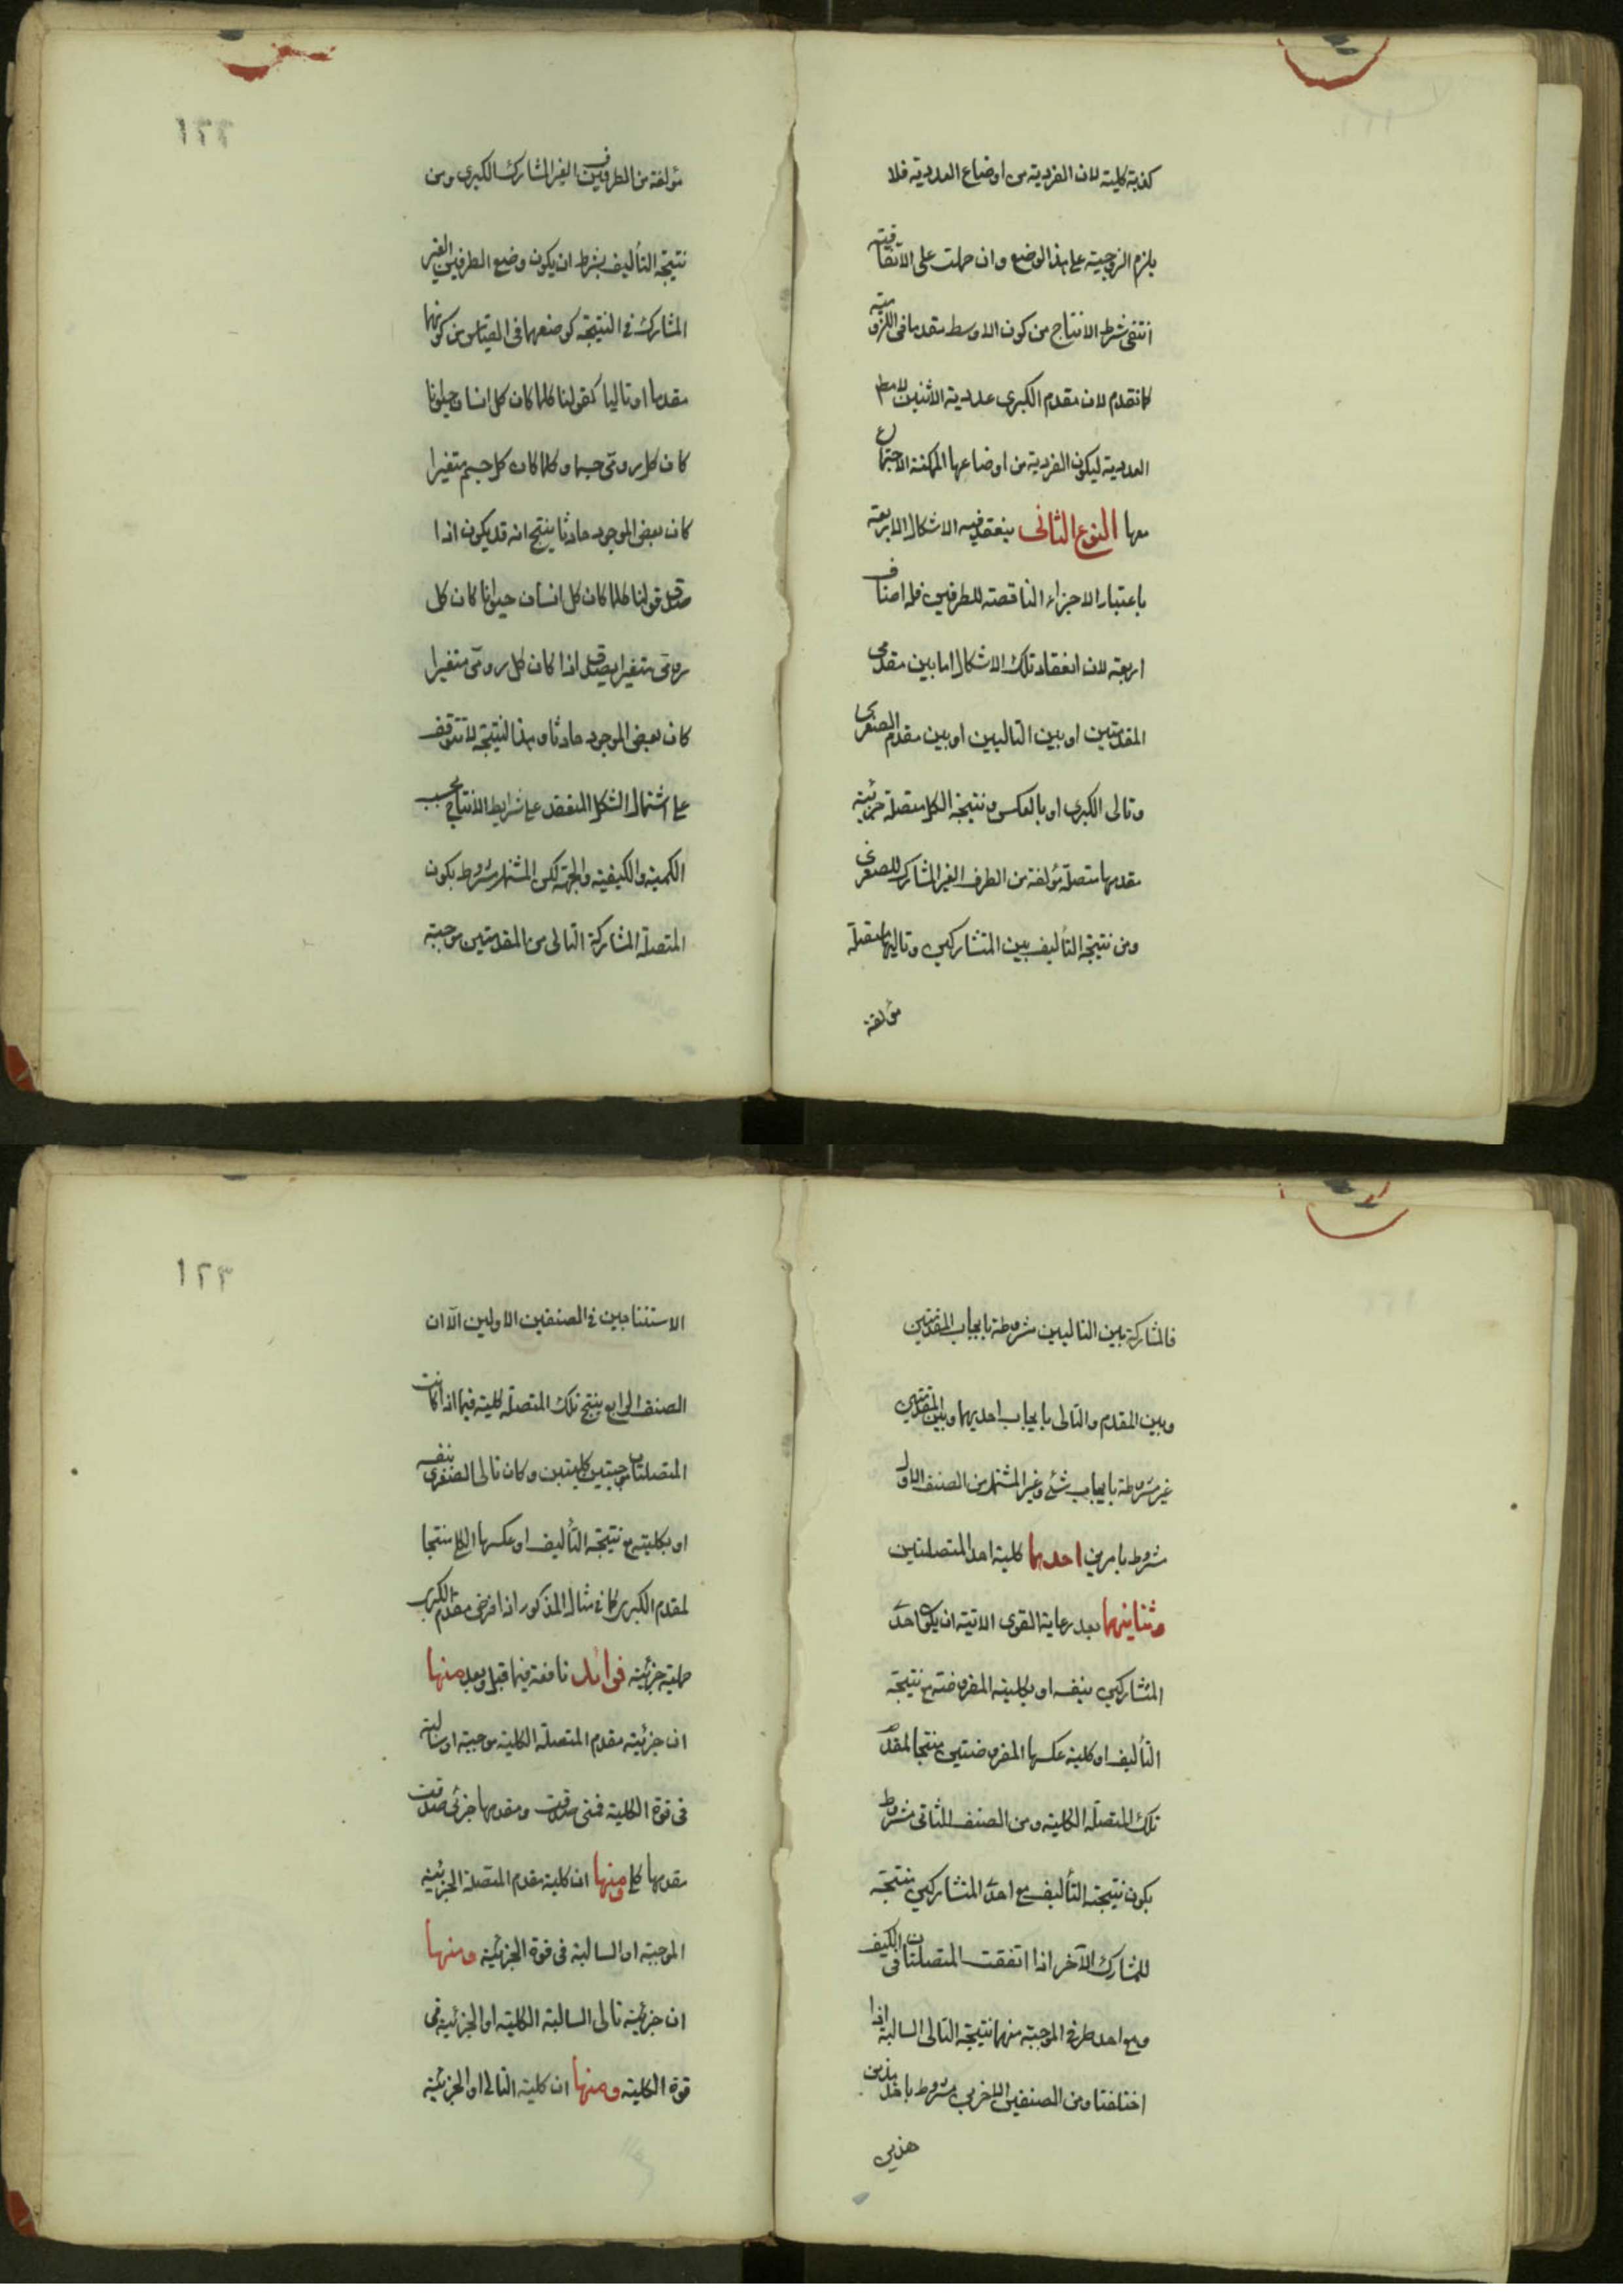 كذبة كلية لان الفردية من اوضاع العددية فلا
يلزم الزوجية على هذا الوضع وان حملت على الاتفاقية
انتفى شرط الانتاج من كون الاوسط مقدما فى اللزومية
كما تقدم لان مقدم الكبرى عددية الاثنين لا مط
العددية ليكون الفردية من اوضاعها الممكنة الاجتماع
معها النوع الثانى ينعقد فيه الاشكال الاربعة
باعتبار الاجزاء الناقصة للطرفين فله اصناف
اربعة لان انعقاد تلك الاشكال اما بين مقدمى
المقدمتين او بين التاليين او بين مقدم الصغرى
وتالى الكبرى او بالعكس ونتيجة الكل متصلة جزئية
مقدمها متصلة مؤلفة من الطرف الغير المشارك للصغرى
ومن نتيجة التأليف بين المتشاركين وتاليها متصلة
مؤلفة
مؤلفة من الطرف الغير المشارك الكبرى ومن
نتيجة التأليف بشرط ان يكون وضع الطرفين الغير
المشارك فى النتيجة كوضعها فى القياس من كونها
مقدما او تاليا كقولنا كلما كان كل انسان حيوانا
كان كل رومى جسما وكلما كان كل جسم متغيرا
كان بعض الموجود حادثا ينتج انه قد يكون اذا
صدق قولنا كلما كان كل انسان حيوانا كان كل
رومى متغيرا يصدق اذا كان كل رومى متغيرا
كان بعض الموجود حادثا وهذا النتيجة لا تتوقف
على اشتمال الشكل المنعقد على شرايط الانتاج بحسب
الكمية والكيفية والجهة لكن المشتهر مشروط بكون
المتصلة المشاركة التالى من المقدمتين موجبة
١٢٢
فالمشاركة بين التاليين مشروطة بايجاب المقدمتين
وبين المقدم والتالى بايجاب احديهما وبين المقدمتين
غير مشروطة بايجاب شئ وغير المشتهر من الصنف الاول
مشروط بامرين احدهما كلية احد المتصلتين
وثانيهما بعد رعاية القوى الاتية ان يكون احد
المتشاركين بنفسه او بكليته المفروضة مع نتيجة
التأليف او كلية عكسها المفروضتين منتجا لمقدم
تلك المتصلة الكلية ومن الصنف الثانى مشروط
بكون نتيجة التأليف مع احد المتشاركين منتجة
للمشارك الآخر اذا اتفقت المتصلتان فى الكيف
ومع احد طرفى الموجبة منهما نتيجة التالى السالبة اذا
اختلفتا ومن الصنفين الاخرين مشروط باحد هذين
هذين
الاستنتاجين فى الصنفين الاولين الآ ان
الصنف الرابع ينتج تلك المتصلة كلية فيما اذا كانت
المتصلتان موجبتين كليتين وكان تالى الصغرى بنفسه
او بكليته مع نتيجة التأليف او عكسها الكلى منتجا
لمقدم الكبرى كما فى مثال المذكور اذا فرض مقدم الكبرى
حملية جزئية فوائد نافعة فيما قبل وبعد منها
ان جزئية مقدم المتصلة الكلية موجبة او سالبة
فى قوة الكلية فمتى صدقت ومقدمها جزئى صدقت
مقدمها كلى ومنها ان كلية مقدم المتصلة الجزئية
الموجبة او السالبة فى قوة الجزئية ومنها
ان جزئية تالى السالبة الكلية او الجزئية فى
قوة الكلية ومنها ان كلية التالى او الجزئية
١٢٣